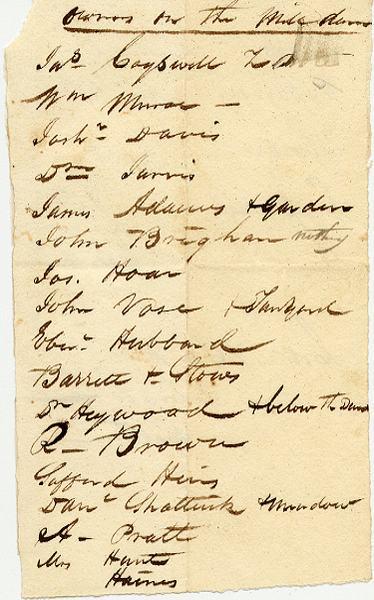 owners on the Mill dam
Jas. Cogswell
Wm Munroe -
Joshn Davis
Dn Jarvis
James Adams & Garden
John Brigham nothing
Jos. Hoar
John Vose & Tanyard
Ebenr Hubbard
Barrett & Stows
Dr Heywood & below the Dam
R - Brown
Safford Heirs
Danl Shattuck & Meadow
A - Pratt
Mrs Hunt
Haines